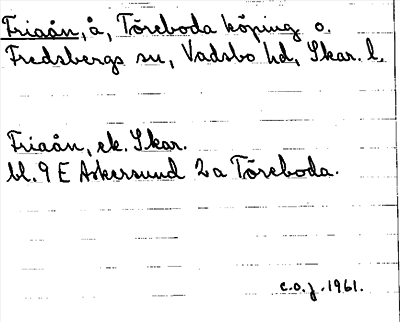 Friaån, å, Töreboda köping o.
Fredsbergs sn, Vadsbo hd, Skar. l.
Friaån, ek. Skar.
bl. 9 E Askersund 2a Töreboda.
c.o.j. 1961.